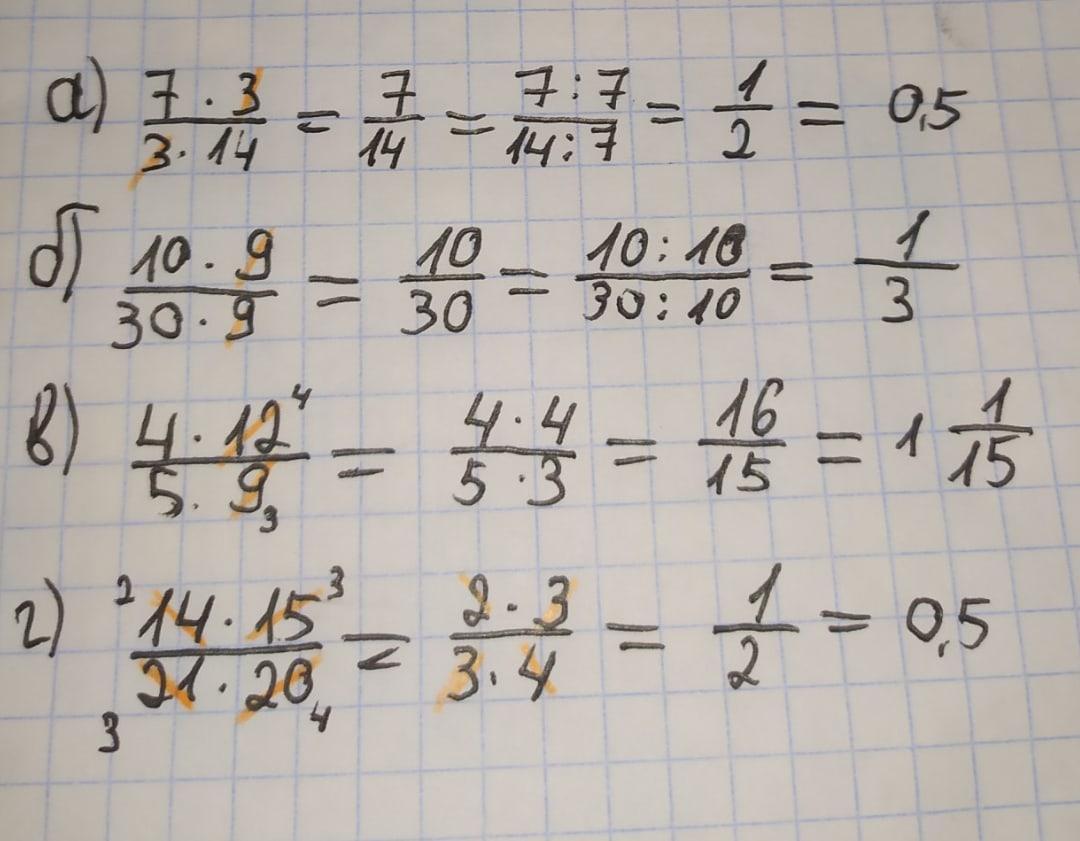 а) 7 · 3 / 3 · 14 = 7 / 14 = 7 : 7 / 14 : 7 = 1 / 2 = 0,5
б) 10 · 9 / 30 · 9 = 10 / 30 = 10 : 10 / 30 : 10 = 1 / 3
в) 4 · 12 4 / 5 · 9 3 = 4 · 4 / 5 · 3 = 16 / 15 = 1 1 / 15
г) 2 14 · 15 3 / 3 21 · 20 4 = 2 · 3 / 3 · 4 = 1 / 2 = 0,5